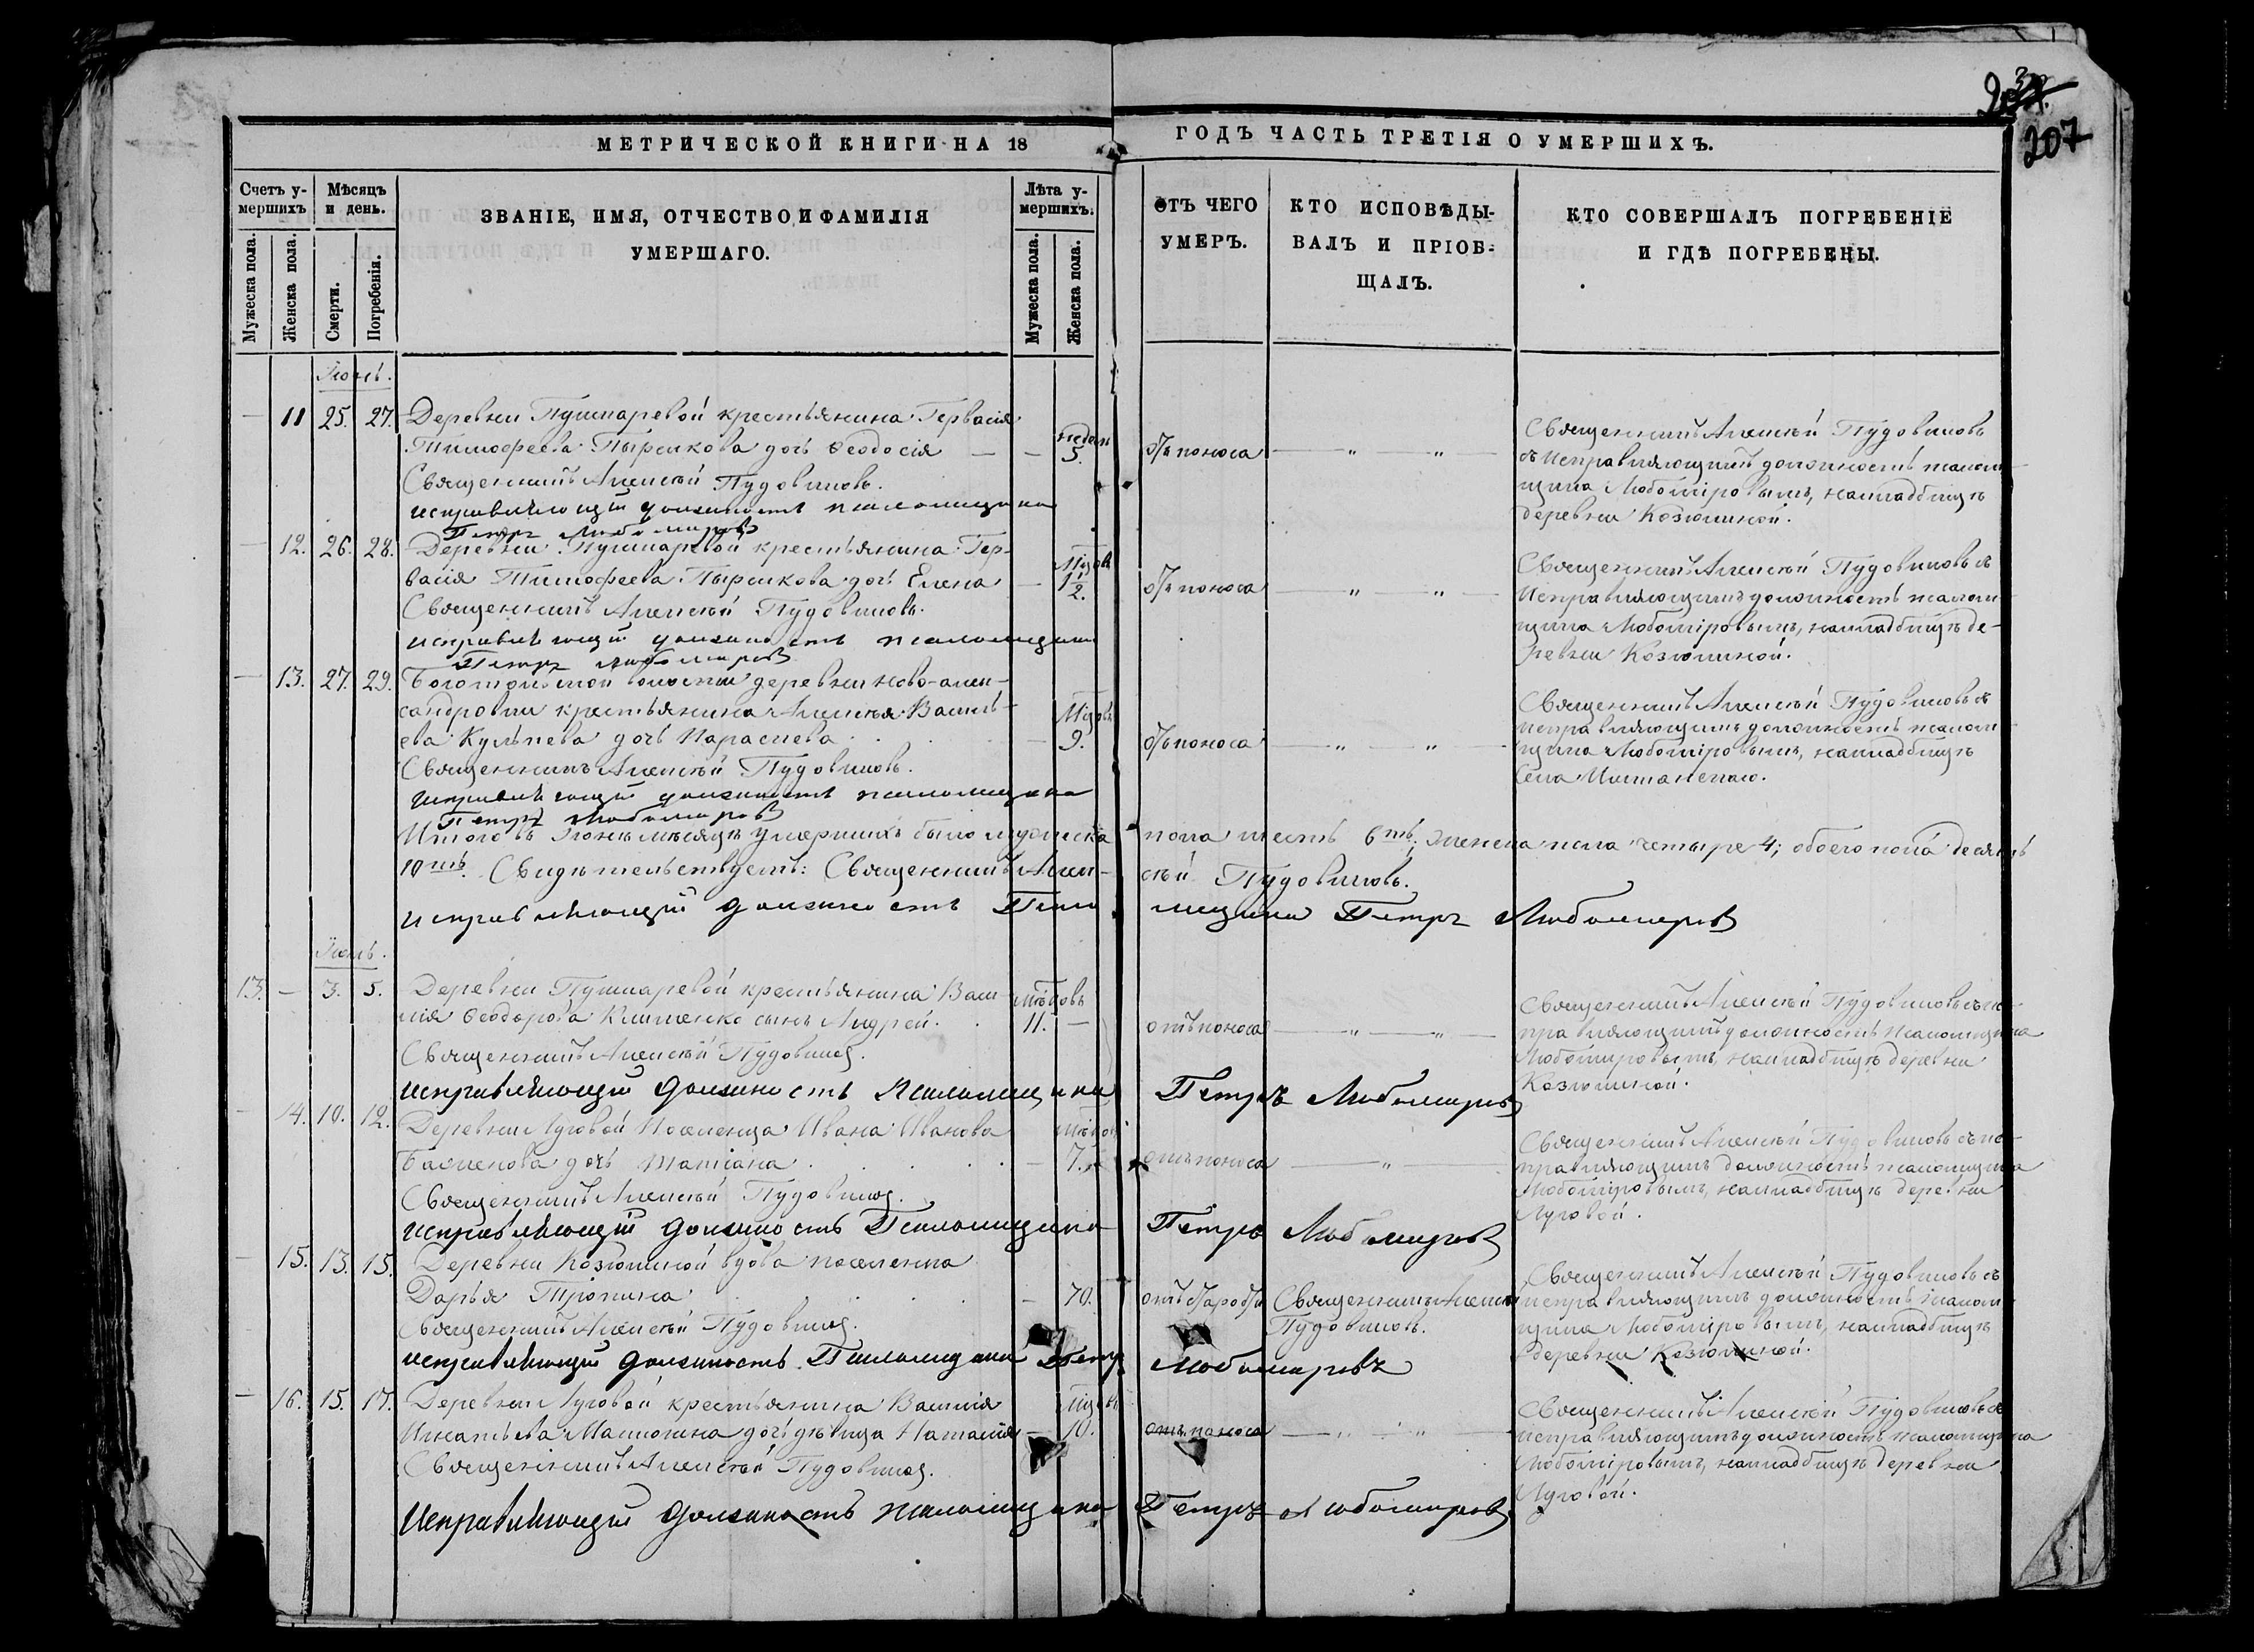 207
МЕТРИЧЕСКОЙ КНИГИ НА 18 ГОДЪ ЧАСТЬ ТРЕТІЯ О УМЕРШИХЪ.
Счетъ у-
мершихъ
Мужеска пола.
Женска пола.
Мѣсяцъ
и день.
Смерти.
Погребенія.
ЗВАНІЕ, ИМЯ, ОТЧЕСТВО И ФАМИЛІЯ
УМЕРШАГО.
Лѣта у-
мершихъ.
Мужеска пола.
Женска пола.
ОТЪ ЧЕГО
УМЕРЪ.
КТО ИСПОВѢДЫ-
ВАЛЪ И ПРІОБ-
ЩАЛЪ.
КТО СОВЕРШАЛЪ ПОГРЕБЕНІЕ
И ГДѢ ПОГРЕБЕНЫ.
Іюнь.
— 11 25. 27. Деревни крестьянина Гервасія
Тимофеева Пырсикова дочь Ѳеодосія — — 5.
Священникъ Алексѣй Пудовиковъ.
исправляющій должность псаломщика
Петръ Любомировъ
отъ поноса — „ — „ —
Священникъ Алексѣй Пудовиковъ
съ исправляющимъ должность псалом-
щика Любоміровымъ, на кладбищѣ
деревни Козюлиной.
— 12. 26. 28. Деревни крестьянина Гер-
васія Тимофеева Пырсикова дочь Елена — 1½.
Священникъ Алексѣй Пудовиковъ.
исправляющій должность псаломщика
Петръ Любомировъ
отъ поноса — „ — „ —
Священникъ Алексѣй Пудовиковъ съ
исправляющимъ должность псалом-
щика Любоміровымъ, на кладбищѣ де-
ревни Козюлиной.
— 13. 27. 29. Боготольской волости деревни Ново-алек-
сандровки крестьянина Алексѣя Василь-
ева дочь Параскева — 9.
Священникъ Алексѣй Пудовиковъ.
исправляющій должность псаломщика
Петръ Любомировъ
отъ поноса — „ — „ —
Священникъ Алексѣй Пудовиковъ съ
исправляющимъ должность псалом-
щика Любоміровымъ, на кладбищѣ
села
Итого въ Іюнѣ мѣсяцѣ умершихъ было мужеска пола шесть 6ть, женска пола четыре 4; обоего пола десять
10ть. Свидѣтельствуетъ: Священникъ Алек- сѣй Пудовиковъ.
исправляющій должность Псало мщика Петръ Любомировъ
Іюль.
13. — 3. 5. Деревни крестьянина Васи-
лія Ѳеодорова Клименко сынъ Андрей. 11. —
Священникъ Алексѣй Пудовиковъ.
исправляющій должность псаломщика Петръ Любомировъ
отъ поноса — „ — „ —
Священникъ Алексѣй Пудовиковъ съ ис-
правляющимъ должность псаломщика
Любоміровымъ, на кладбищѣ деревни
Козюлиной.
— 14. 10. 12. Деревни Луговой поселенца Ивана Иванова
дочь Татіана — 7.
Священникъ Алексѣй Пудовиковъ.
исправляющій должность Псаломщика Петръ Любомировъ
отъ поноса — „ —
Священникъ Алексѣй Пудовиковъ съ ис-
правляющимъ должность псаломщика
Любоміровымъ, на кладбищѣ деревни
Луговой.
— 15. 13. 15. Деревни Козюлиной вдова поселенка
Дарья — 70.
Священникъ Алексѣй Пудовиковъ.
исправляющій должность Псаломщика Петръ Любомировъ
отъ старости Священникъ Алексѣй
Пудовиковъ.
Священникъ Алексѣй Пудовиковъ съ
исправляющимъ должность псалом-
щика Любоміровымъ, на кладбищѣ
деревни Козюлиной.
— 16. 15. 17. Деревни Луговой крестьянина Василія
Игнатьева дочь дѣвица Наталія — 10.
Священникъ Алексѣй Пудовиковъ.
Исправляющій должность псаломщика Петръ Любомировъ
отъ поноса — „ — „ —
Священникъ Алексѣй Пудовиковъ съ
исправляющимъ должность псаломщика
Любоміровымъ, на кладбищѣ деревни
Луговой.